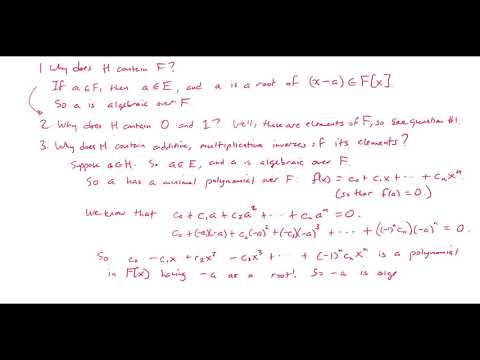 1. Why does H contain F?
If a ∈ F, then a ∈ E, and a is a root of (x-a) ∈ F[x].
So a is algebraic over F.
2. Why does H contain 0 and 1? Well, these are elements of F, so see question #1.
3. Why does H contain additive, multiplicative inverses of its elements?
Suppose a ∈ H. So a ∈ E, and a is algebraic over F.
So a has a minimal polynomial over F: f(x) = c₀ + c₁x + ⋯ + cₙxⁿ.
(so that f(a) = 0.)
We know that c₀ + c₁a + c₂a² + ⋯ + cₙaⁿ = 0.
c₀ + (-c₁)(-a) + c₂(-a)² + (-c₃)(-a)³ + ⋯ + ((-1)ⁿcₙ)(-a)ⁿ = 0.
So c₀ - c₁x + c₂x² - c₃x³ + ⋯ + (-1)ⁿcₙxⁿ is a polynomial
in F[x] having -a as a root! So -a is alge